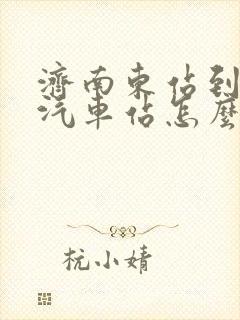 濟南東佔到
汽車佔怎麼
杭小婧